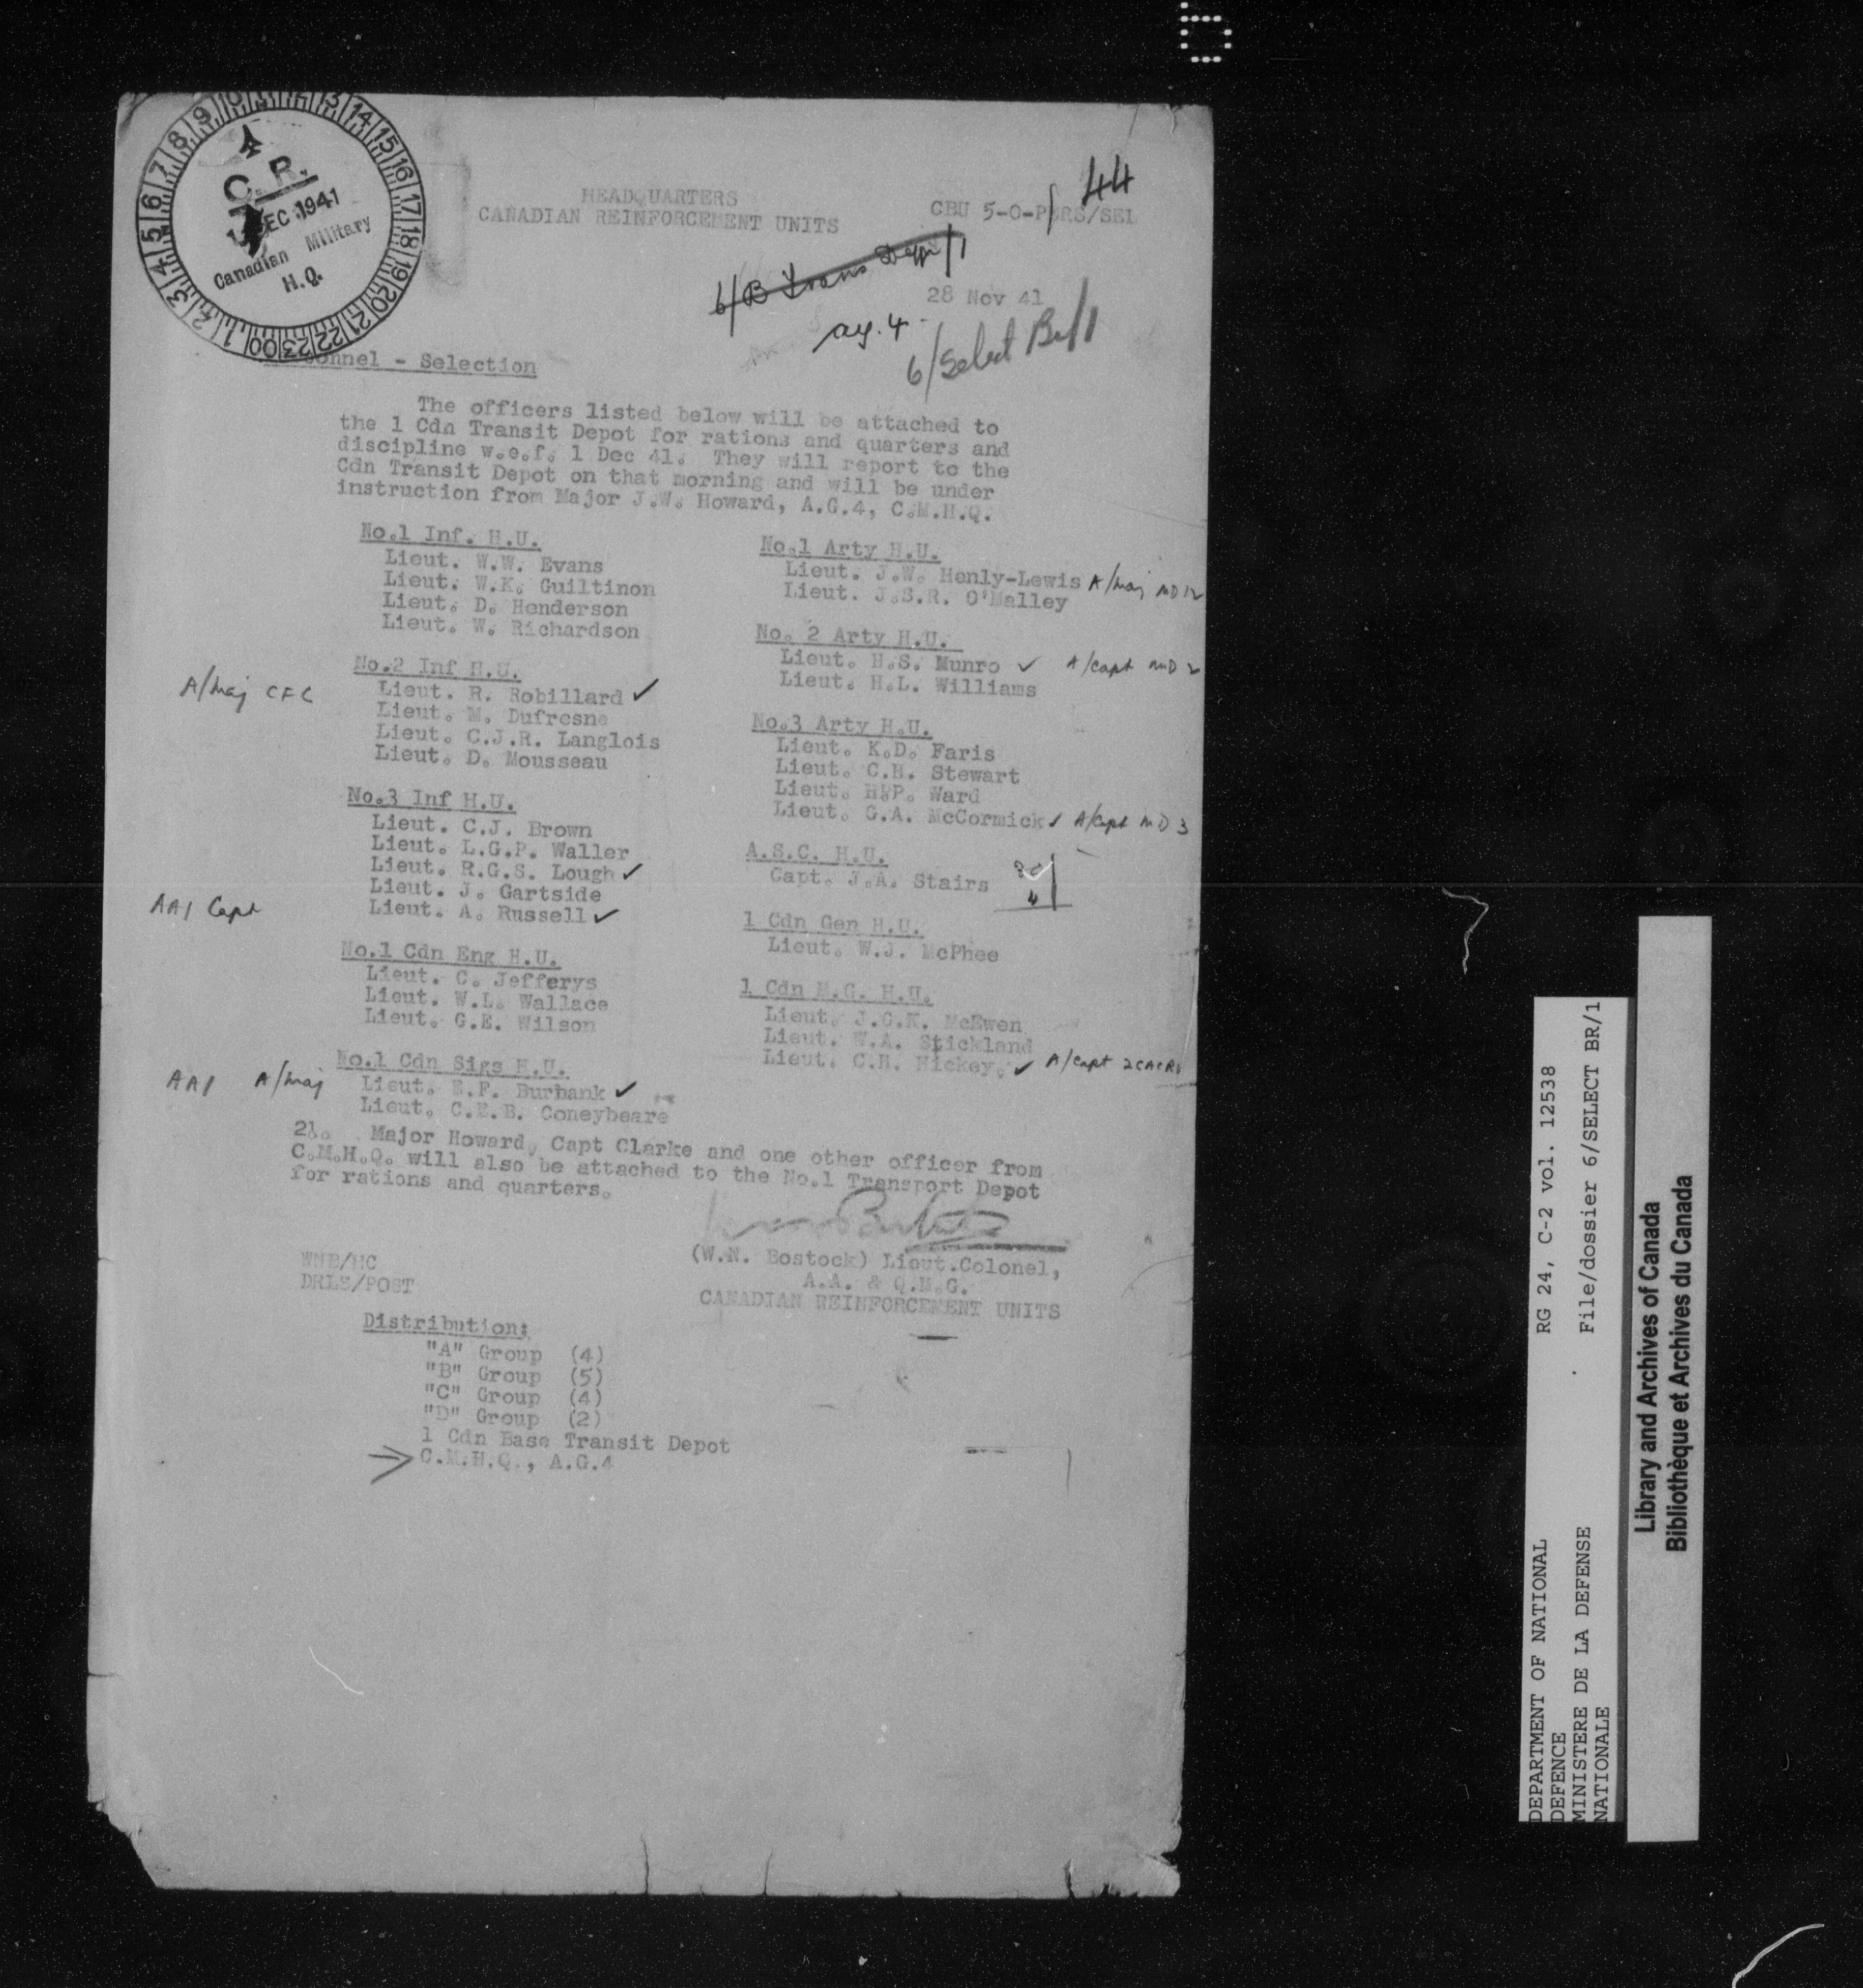 44
HEADQUARTERS
CANADIAN REINFORCEMENT UNITS
CBU 5-0-PERS/SEL
C. R.
DEC 1941
Canadian Military
H.Q.
6/B Trans Depot/1
28 Nov 41
ag. 4
6/Select Br/1
onnel - Selection
The officers listed below will be attached to
the 1 Cdn Transit Depot for rations and quarters and
discipline w.e.f. 1 Dec 41. They will report to the
Cdn Transit Depot on that morning and will be under
instruction from Major J.W. Howard, A.G.4, C.M.H.Q.
No.1 Inf. H.U.
Lieut. W.W. Evans
Lieut. W.K. Guiltinon
Lieut. D. Henderson
Lieut. W. Richardson
No.2 Inf H.U.
A/Maj CFC Lieut. R. Robillard ✓
Lieut. M. Dufresne
Lieut. C.J.R. Langlois
Lieut. D. Mousseau
No.3 Inf H.U.
Lieut. C.J. Brown
Lieut. L.G.P. Waller
Lieut. R.G.S. Lough ✓
Lieut. J. Gartside
AA1 Capt Lieut. A. Russell ✓
No.1 Cdn Eng H.U.
Lieut. C. Jefferys
Lieut. W.L. Wallace
Lieut. G.E. Wilson
No.1 Cdn Sigs H.U.
AA1 A/Maj Lieut. E.F. Burbank ✓
Lieut. C.E.B. Coneybeare
No.1 Arty H.U.
Lieut. J.W. Henly-Lewis A/Maj MD 12
Lieut. J.S.R. O'Malley
No. 2 Arty H.U.
Lieut. H.S. Munro ✓ A/Capt MD 2
Lieut. H.L. Williams
No.3 Arty H.U.
Lieut. K.D. Faris
Lieut. C.H. Stewart
Lieut. H.P. Ward
Lieut. G.A. McCormick ✓ A/Capt MD 3
A.S.C. H.U.
Capt. J.A. Stairs
4
1 Cdn Gen H.U.
Lieut. W.J. McPhee
1 Cdn M.G. H.U.
Lieut. J.G.K. McEwen
Lieut. W.A. Stickland
Lieut. C.H. Hickey. ✓ A/Capt 2CACRU
2. Major Howard, Capt Clarke and one other officer from
C.M.H.Q. will also be attached to the No.1 Transport Depot
for rations and quarters.
WNB/HC
DRLS/POST
(W.N. Bostock) Lieut.Colonel,
A.A. & Q.M.G.
CANADIAN REINFORCEMENT UNITS
Distribution:
"A" Group (4)
"B" Group (5)
"C" Group (4)
"D" Group (2)
1 Cdn Base Transit Depot
C.M.H.Q., A.G.4
DEPARTMENT OF NATIONAL
DEFENCE
MINISTERE DE LA DEFENSE
NATIONALE
RG 24, C-2 vol. 12538
File/dossier 6/SELECT BR/1
Library and Archives of Canada
Bibliothèque et Archives du Canada